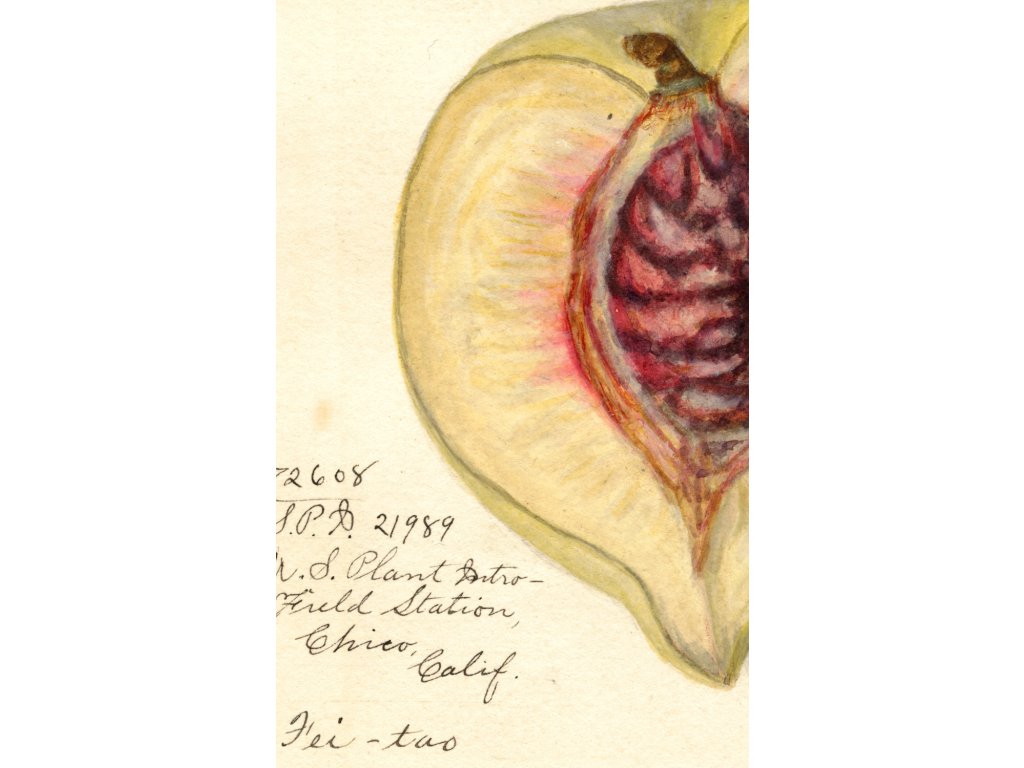 72608
S.P.I. 21989
U.S. Plant Intro-
Field Station,
Chico,
Calif.
Fei-tao